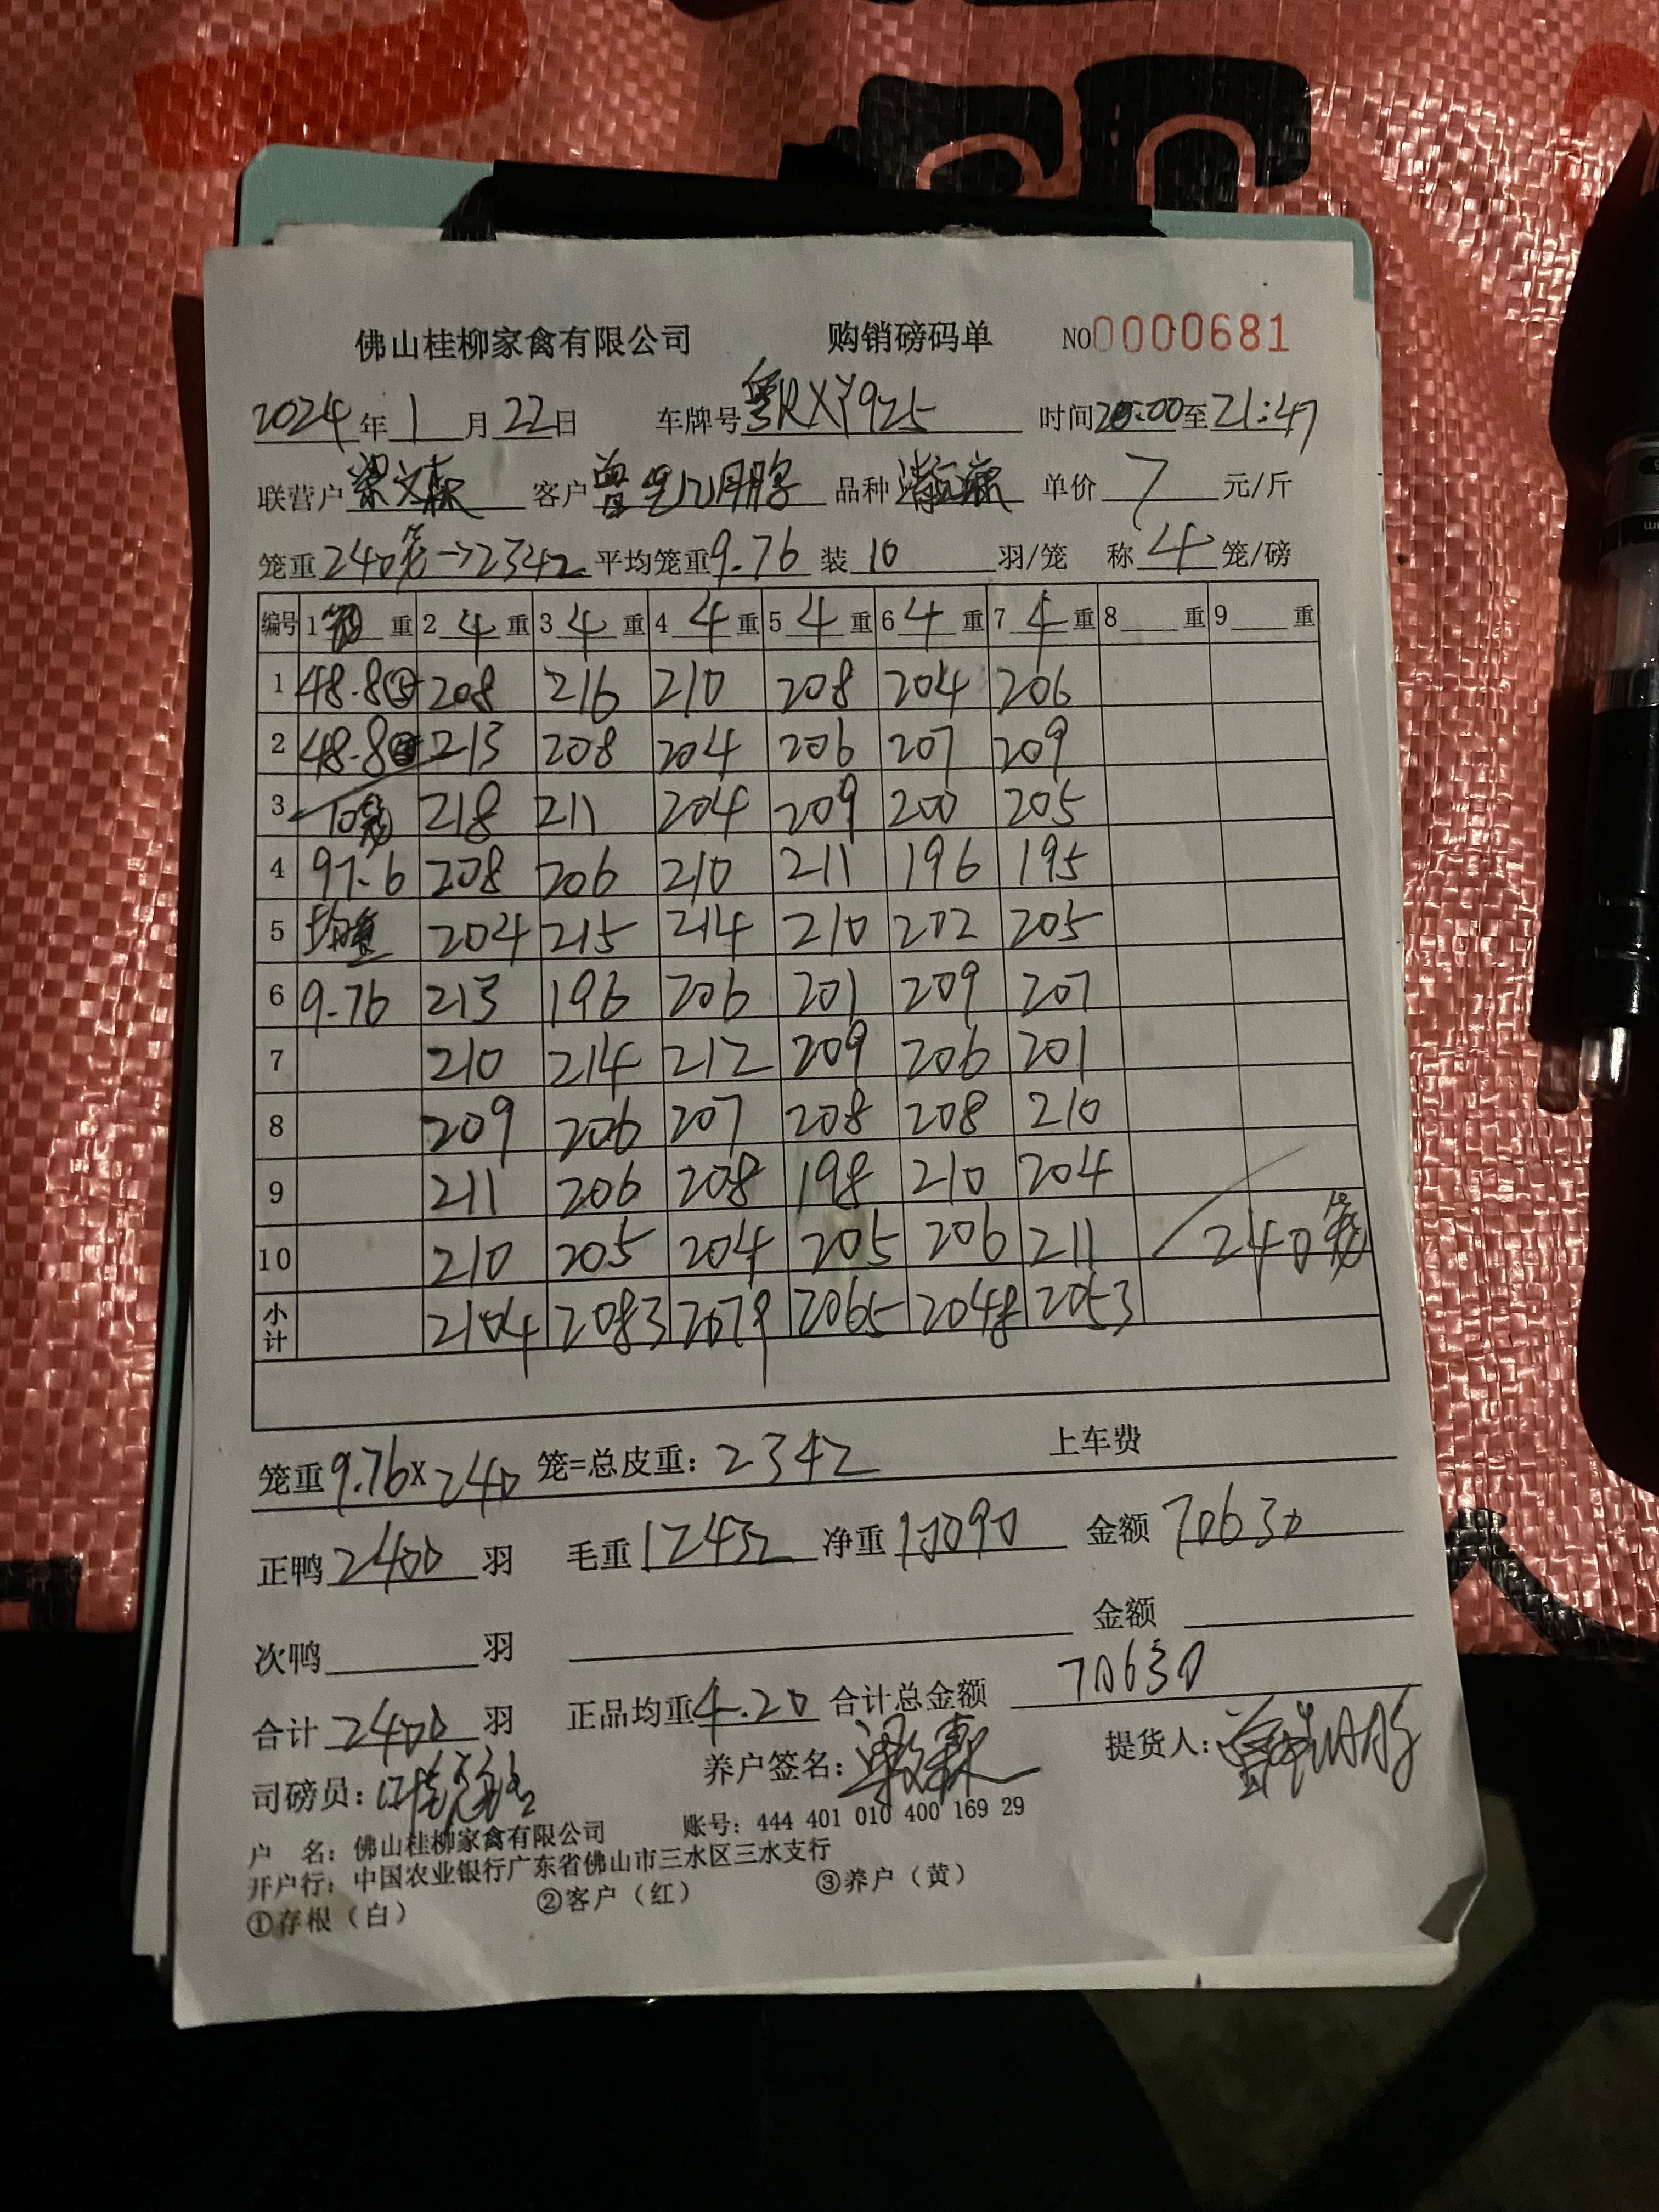 佛山桂柳家禽有限公司 购销磅码单 NO0000681
2024年1月22日 车牌号粤RXY925 时间20:00至21:47
联营户梁文森 客户曾 品种 单价7元/斤
笼重240笼→2342 平均笼重9.76 装10羽/笼 称4笼/磅
编号 1笼重 2 4重 3 4重 4 4重 5 4重 6 4重 7 4重 8重 9重
1 48.8⑤ 208 216 210 208 204 206
2 48.8 213 208 204 206 207 209
3 10笼 218 211 204 209 200 205
4 97.6 208 206 210 211 196 195
5 均重 204 215 214 210 202 205
6 9.76 213 196 206 201 209 207
7 210 214 212 209 206 201
8 209 206 207 208 208 210
9 211 206 208 198 210 204
10 210 205 204 205 206 211 240笼
小计 2104 2083 2079 2065 2048 2053
笼重9.76x240笼=总皮重：2342 上车费
正鸭2400羽 毛重12432 净重10090 金额70630
次鸭 羽 金额
合计2400羽 正品均重4.20 合计总金额 70630
司磅员： 养户签名：梁文森 提货人：曾
户 名：佛山桂柳家禽有限公司 账号：444 401 010 400 169 29
开户行：中国农业银行广东省佛山市三水区三水支行
①存根（白） ②客户（红） ③养户（黄）